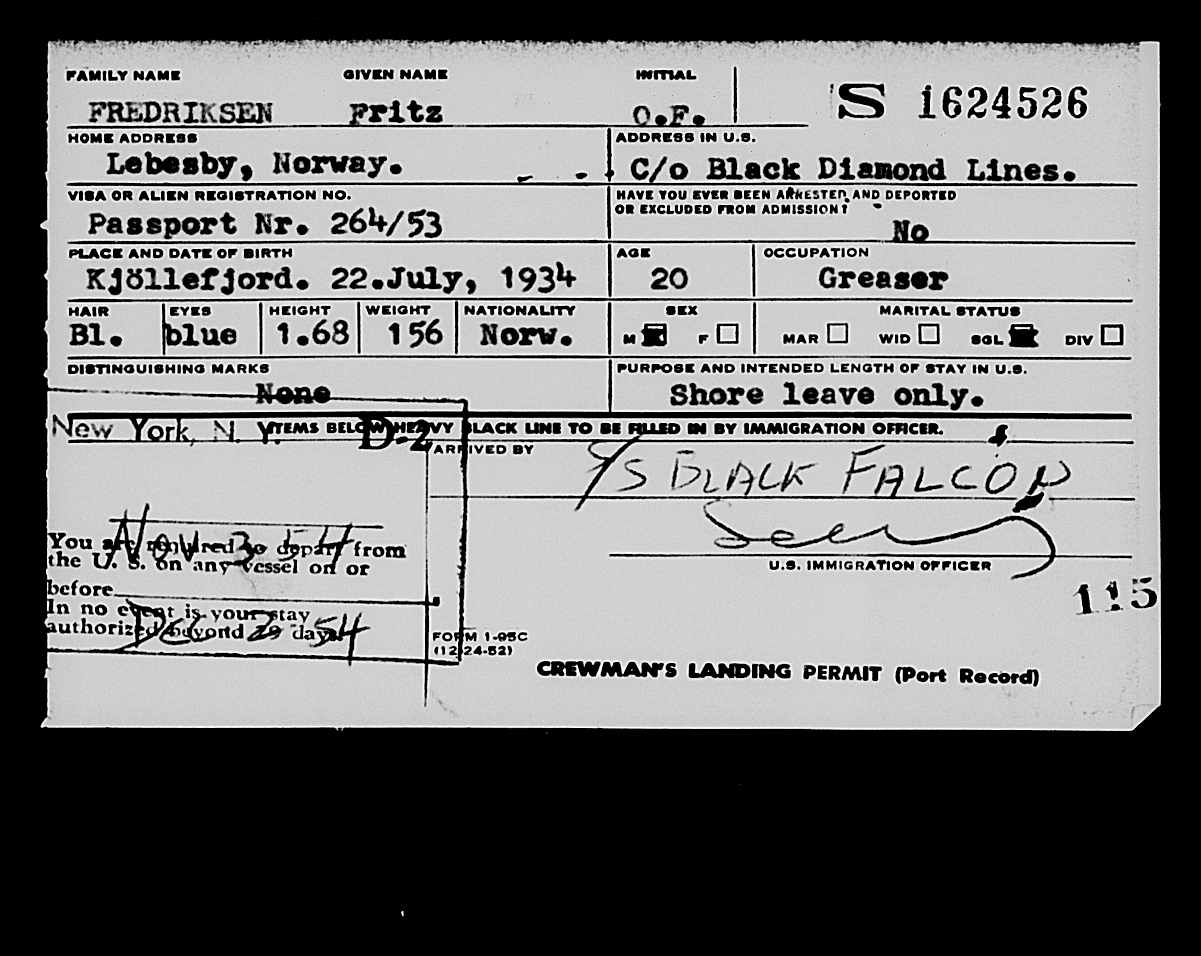 FAMILY NAME GIVEN NAME INITIAL
FREDRIKSEN Fritz O.F. S 1624526
HOME ADDRESS ADDRESS IN U.S.
Lebesby, Norway. C/o Black Diamond Lines.
VISA OR ALIEN REGISTRATION NO. HAVE YOU EVER BEEN ARRESTED AND DEPORTED
OR EXCLUDED FROM ADMISSION?
Passport Nr. 264/53 No
PLACE AND DATE OF BIRTH AGE OCCUPATION
Kjöllefjord. 22.July, 1934 20 Greaser
HAIR EYES HEIGHT WEIGHT NATIONALITY SEX MARITAL STATUS
Bl. blue 1.68 156 Norw. M F MAR WID SGL DIV
DISTINGUISHING MARKS PURPOSE AND INTENDED LENGTH OF STAY IN U.S.
None Shore leave only.
New York, N. Y. ITEMS BELOW HEAVY BLACK LINE TO BE FILLED IN BY IMMIGRATION OFFICER.
D-2
ARRIVED BY S/S BLACK FALCON
Nov 3 54
You are required to depart from
the U. S. on any vessel on or
before
U.S. IMMIGRATION OFFICER
In no event is your stay
authorized beyond 29 days
Dec 2 54
115
FORM 1-95C
(12-24-52)
CREWMAN'S LANDING PERMIT (Port Record)